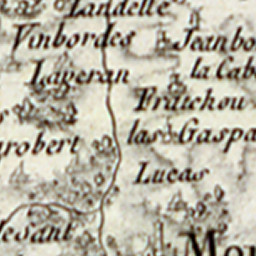 Landelle
Vinbordes
Jeanbo
Laveran
la Cab
Fraichou
las Gaspa
robert
Lucas
lesant
Mon